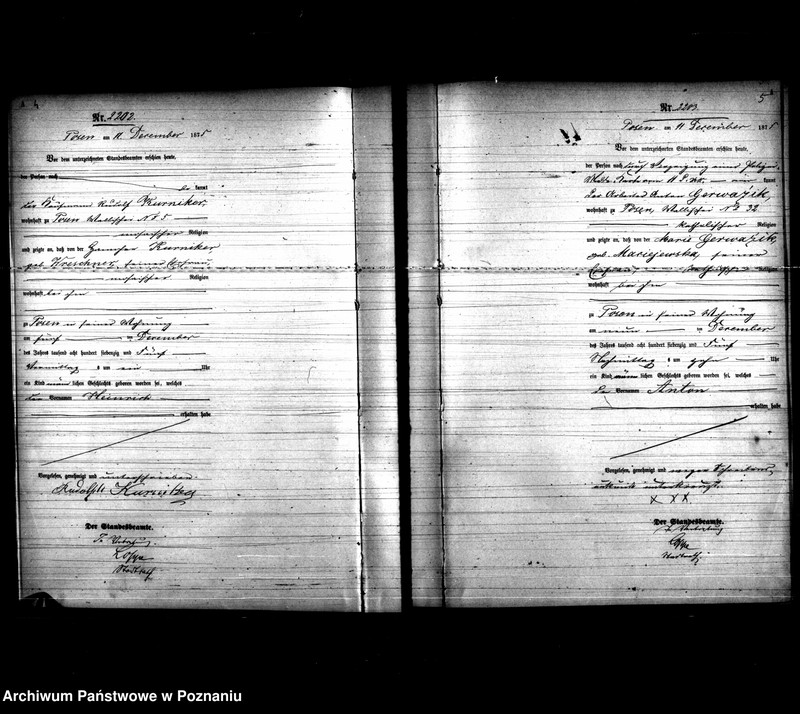 4
Nr. 2202.
Posen am 11 December 1875
Vor dem unterzeichneten Standesbeamten erschien heute,
der Person nach
be kannt
der Kaufmann Rudolf Kurniker,
wohnhaft zu Posen Wallischei No 5
mosaischer Religion
und zeigte an, daß von der Kurniker
geb. Wreschner, seiner Ehefrau,
mosaischer Religion
wohnhaft bei ihm
zu Posen in seiner Wohnung
am fünf ten December
des Jahres tausend acht hundert siebenzig und Fünf
Vormittag s um ein Uhr
ein Kind männ lichen Geschlechts geboren worden sei, welches
den Vornamen Heinrich
erhalten habe
Vorgelesen, genehmigt und unterschrieben.
Rudolph Kurniker
Der Standesbeamte.
In Vertretung
Stadtrath
5
Nr. 2203.
Posen am 11 December 1875
Vor dem unterzeichneten Standesbeamten erschien heute,
der Person nach durch
kannt
der Arbeiter Anton Gerwazik,
wohnhaft zu Posen, Wallischei No 32
katholischer Religion
und zeigte an, daß von der Marie Gerwazik,
geb. Maciejewska, seiner
Ehefrau katholischer Religion
wohnhaft bei ihm
zu Posen in seiner Wohnung
am neun ten December
des Jahres tausend acht hundert siebenzig und Fünf
Nachmittag s um zehn Uhr
ein Kind männ lichen Geschlechts geboren worden sei, welches
den Vornamen Anton
erhalten habe
Vorgelesen, genehmigt und wegen Schreibens
unkunde unterkreuzt.
X X X
Der Standesbeamte.
In Vertretung
Stadtrath
Archiwum Państwowe w Poznaniu